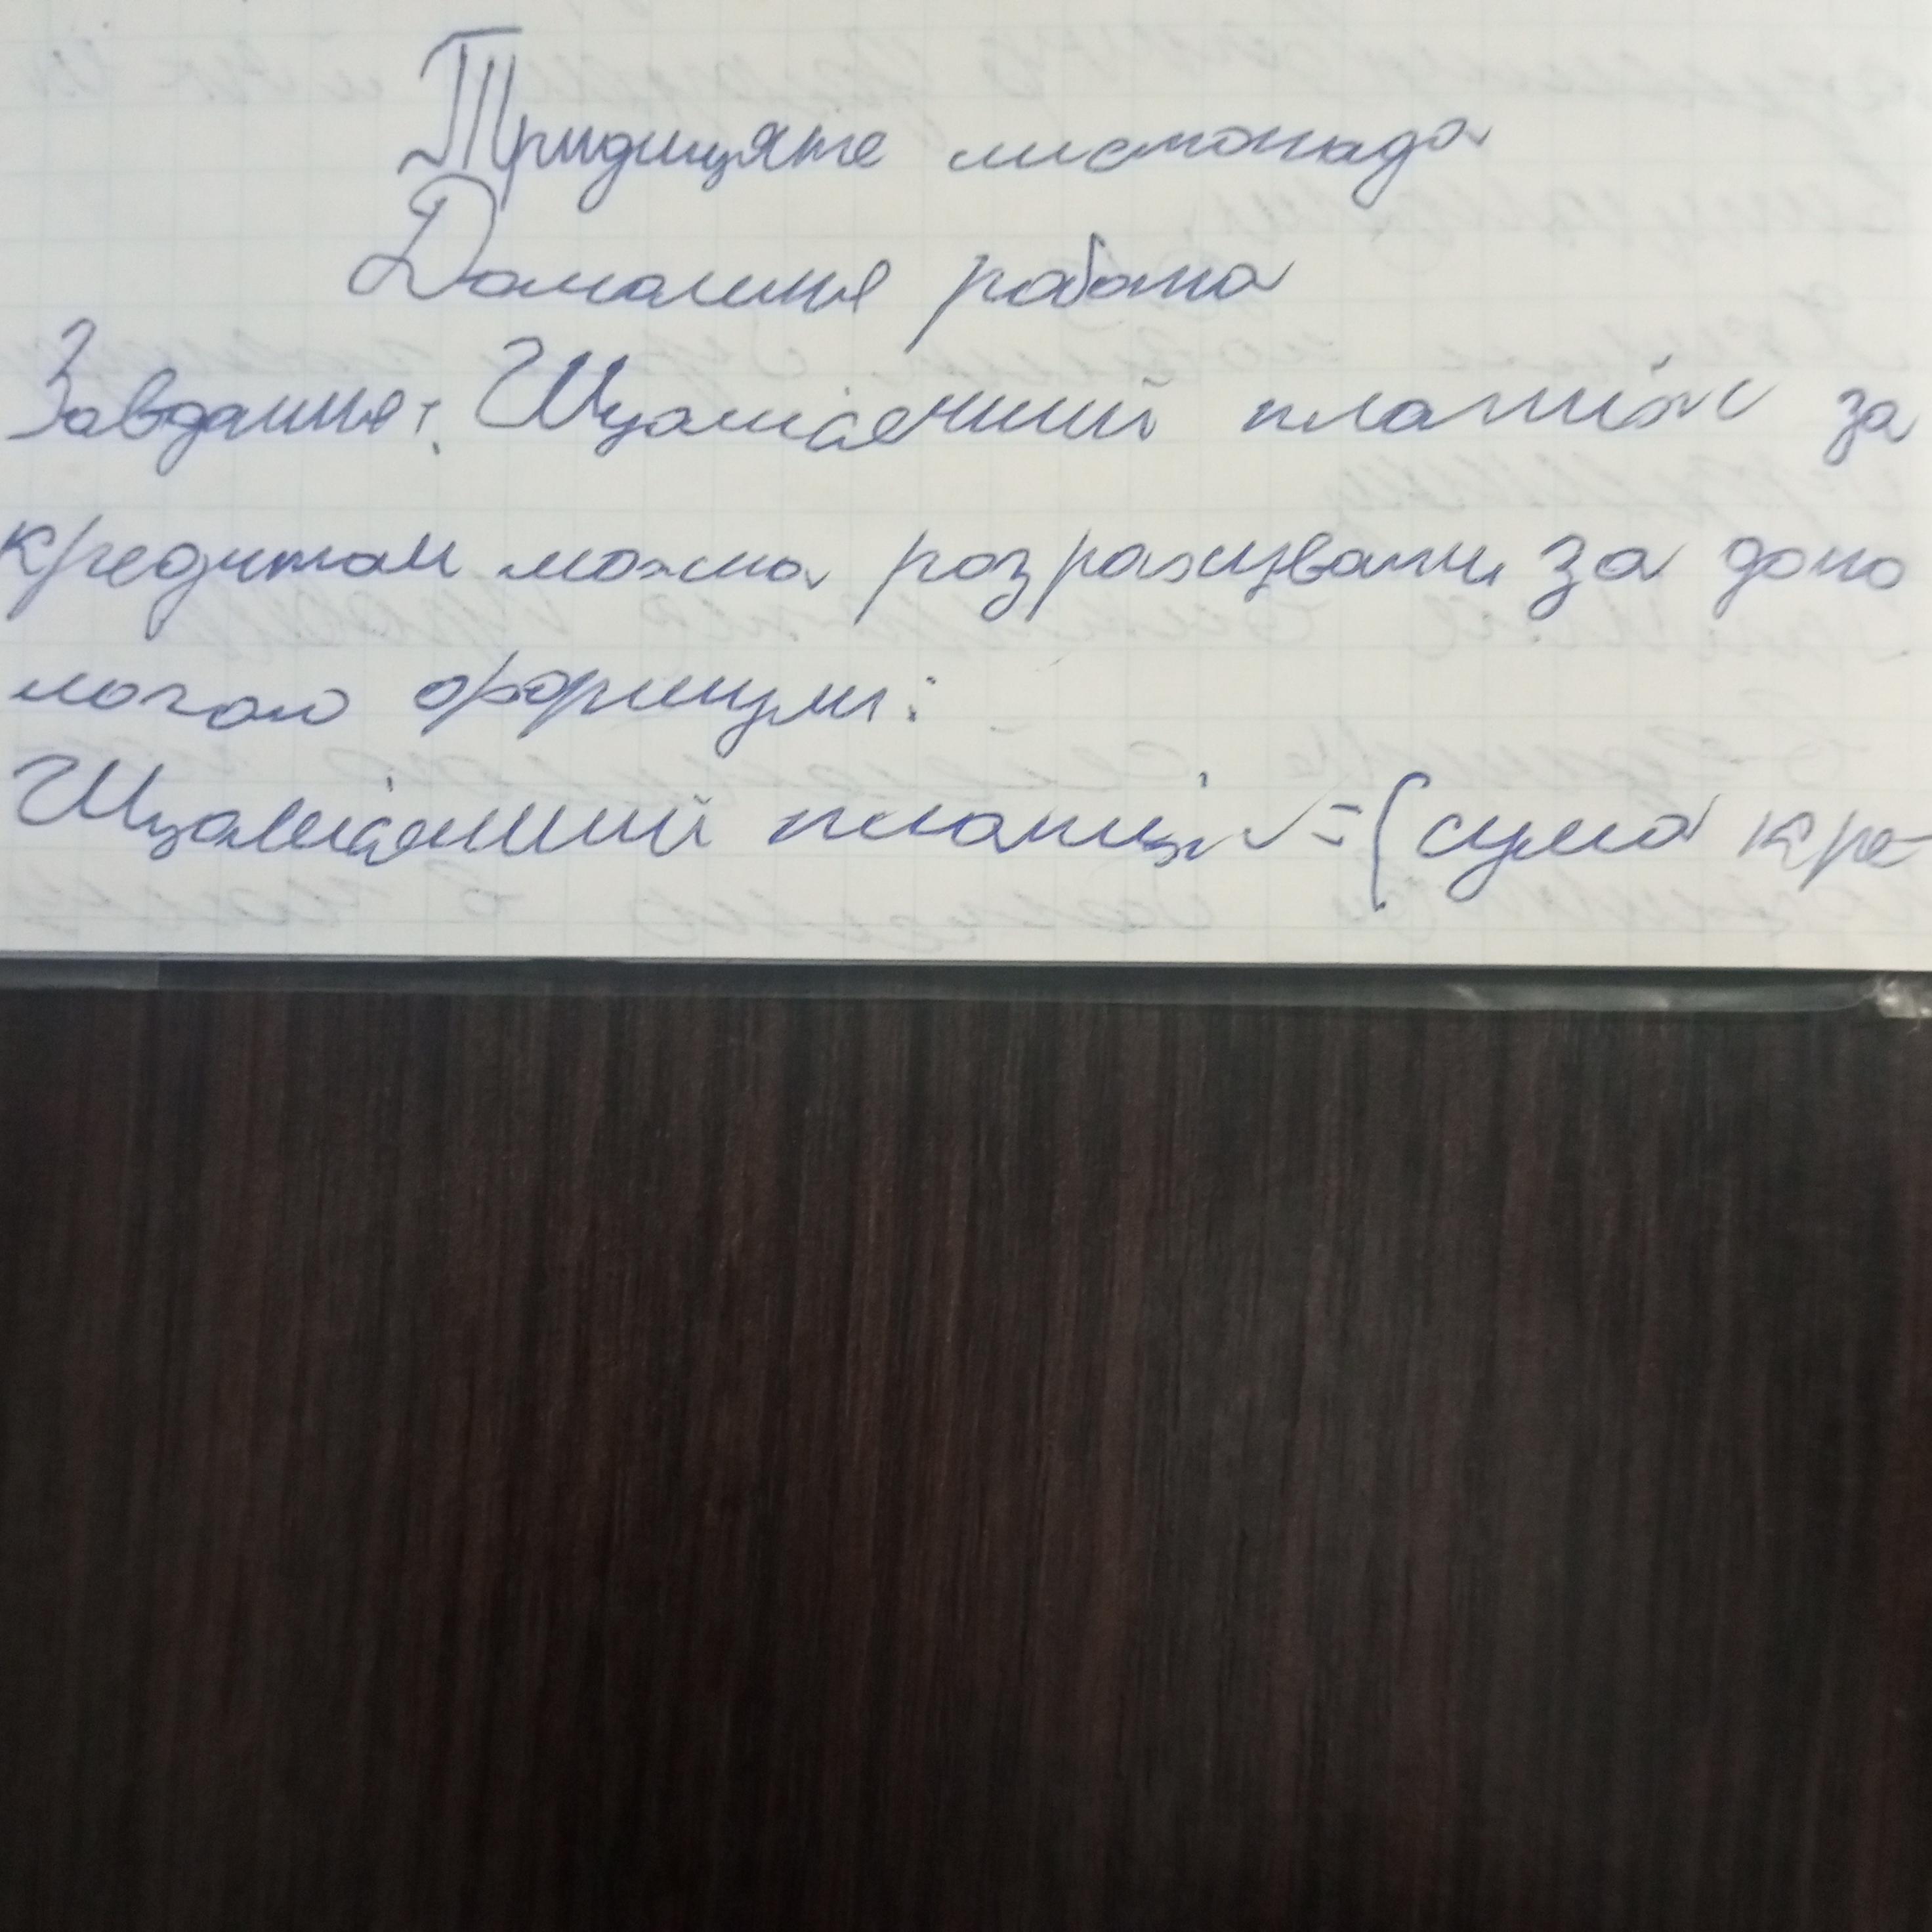 Тридцяте листопада
Домашня робота
Завдання: Щомісячний платіж за
кредитом можна розрахувати за допо
могою формули:
Щомісячний платіж = (сума кре-